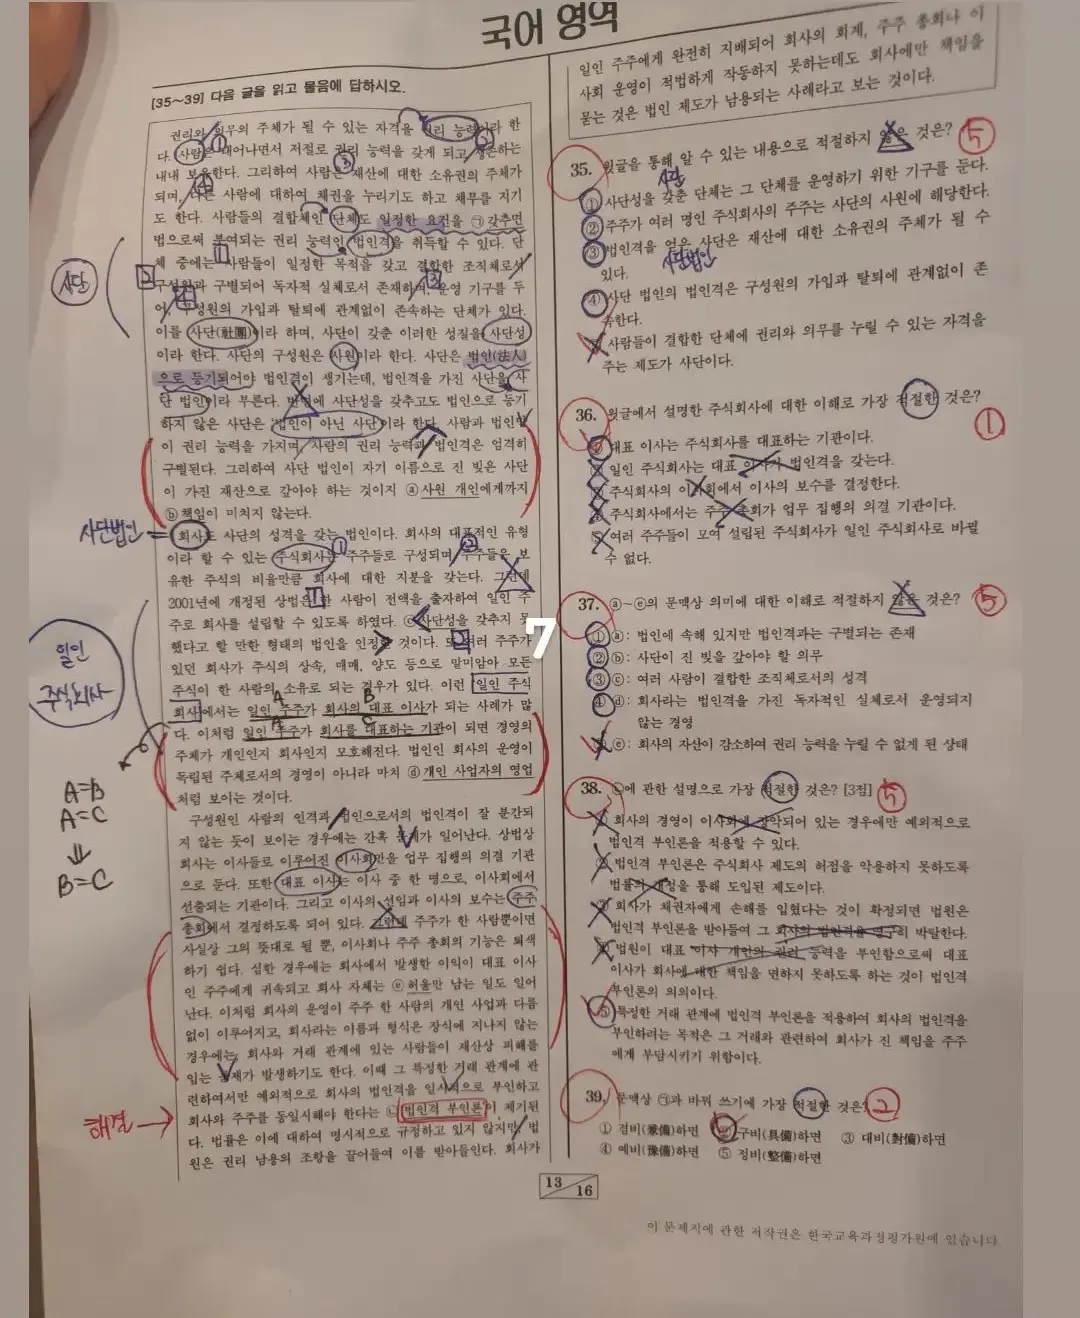 국어 영역
[35～39] 다음 글을 읽고 물음에 답하시오.
권리와 의무의 주체가 될 수 있는 자격을 권리 능력이라 한
다. 사람은 태어나면서 저절로 권리 능력을 갖게 되고 생존하는
내내 보유한다. 그리하여 사람은 재산에 대한 소유권의 주체가
되며, 다른 사람에 대하여 채권을 누리기도 하고 채무를 지기
도 한다. 사람들의 결합체인 단체도 일정한 요건을 ㉠갖추면
법으로써 부여되는 권리 능력인 법인격을 취득할 수 있다. 단
체 중에는 사람들이 일정한 목적을 갖고 결합한 조직체로서
구성원과 구별되어 독자적 실체로서 존재하며, 운영 기구를 두
어, 구성원의 가입과 탈퇴에 관계없이 존속하는 단체가 있다.
이를 사단(社團)이라 하며, 사단이 갖춘 이러한 성질을 사단성
이라 한다. 사단의 구성원은 사원이라 한다. 사단은 법인(法人)
으로 등기되어야 법인격이 생기는데, 법인격을 가진 사단을 사
단 법인이라 부른다. 반면에 사단성을 갖추고도 법인으로 등기
하지 않은 사단은 '법인이 아닌 사단'이라 한다. 사람과 법인만
이 권리 능력을 가지며, 사람의 권리 능력과 법인격은 엄격히
구별된다. 그리하여 사단 법인이 자기 이름으로 진 빚은 사단
이 가진 재산으로 갚아야 하는 것이지 ⓐ사원 개인에게까지
ⓑ책임이 미치지 않는다.
회사도 사단의 성격을 갖는 법인이다. 회사의 대표적인 유형
이라 할 수 있는 주식회사는 주주들로 구성되며 주주들은 보
유한 주식의 비율만큼 회사에 대한 지분을 갖는다. 그런데
2001년에 개정된 상법은 한 사람이 전액을 출자하여 일인 주
주로 회사를 설립할 수 있도록 하였다. ⓒ사단성을 갖추지 못
했다고 할 만한 형태의 법인을 인정한 것이다. 또 여러 주주가
있던 회사가 주식의 상속, 매매, 양도 등으로 말미암아 모든
주식이 한 사람의 소유로 되는 경우가 있다. 이런 일인 주식
회사에서는 일인 주주가 회사의 대표 이사가 되는 사례가 많
다. 이처럼 일인 주주가 회사를 대표하는 기관이 되면 경영의
주체가 개인인지 회사인지 모호해진다. 법인인 회사의 운영이
독립된 주체로서의 경영이 아니라 마치 ⓓ개인 사업자의 영업
처럼 보이는 것이다.
구성원인 사람의 인격과 법인으로서의 법인격이 잘 분간되
지 않는 듯이 보이는 경우에는 간혹 문제가 일어난다. 상법상
회사는 이사들로 이루어진 이사회만을 업무 집행의 의결 기관
으로 둔다. 또한 대표 이사는 이사 중 한 명으로, 이사회에서
선출되는 기관이다. 그리고 이사의 선임과 이사의 보수는 주주
총회에서 결정하도록 되어 있다. 그런데 주주가 한 사람뿐이면
사실상 그의 뜻대로 될 뿐, 이사회나 주주 총회의 기능은 퇴색
하기 쉽다. 심한 경우에는 회사에서 발생한 이익이 대표 이사
인 주주에게 귀속되고 회사 자체는 ⓔ허울만 남는 일도 일어
난다. 이처럼 회사의 운영이 주주 한 사람의 개인 사업과 다름
없이 이루어지고, 회사라는 이름과 형식은 장식에 지나지 않는
경우에는, 회사와 거래 관계에 있는 사람들이 재산상 피해를
입는 문제가 발생하기도 한다. 이때 그 특정한 거래 관계에 관
련하여서만 예외적으로 회사의 법인격을 일시적으로 부인하고
회사와 주주를 동일시해야 한다는 ㉡'법인격 부인론'이 제기된
다. 법률은 이에 대하여 명시적으로 규정하고 있지 않지만, 법
원은 권리 남용의 조항을 끌어들여 이를 받아들인다. 회사가
사단
사단법인 =
일인
주식회사
A=B
A=C
⇓
B=C
해결 →
일인 주주에게 완전히 지배되어 회사의 회계, 주주 총회나 이
사회 운영이 적법하게 작동하지 못하는데도 회사에만 책임을
묻는 것은 법인 제도가 남용되는 사례라고 보는 것이다.
35. 윗글을 통해 알 수 있는 내용으로 적절하지 않은 것은? 5
사단
① 사단성을 갖춘 단체는 그 단체를 운영하기 위한 기구를 둔다.
② 주주가 여러 명인 주식회사의 주주는 사단의 사원에 해당한다.
③ 법인격을 얻은 사단은 재산에 대한 소유권의 주체가 될 수
있다. 사단법인
④ 사단 법인의 법인격은 구성원의 가입과 탈퇴에 관계없이 존
속한다.
⑤ 사람들이 결합한 단체에 권리와 의무를 누릴 수 있는 자격을
주는 제도가 사단이다.
36. 윗글에서 설명한 주식회사에 대한 이해로 가장 적절한 것은? 1
① 대표 이사는 주식회사를 대표하는 기관이다.
② 일인 주식회사는 대표 이사가 법인격을 갖는다.
③ 주식회사의 이사회에서 이사의 보수를 결정한다.
④ 주식회사에서는 주주 총회가 업무 집행의 의결 기관이다.
⑤ 여러 주주들이 모여 설립된 주식회사가 일인 주식회사로 바뀔
수 없다.
37. ⓐ~ⓔ의 문맥상 의미에 대한 이해로 적절하지 않은 것은? 5
① ⓐ: 법인에 속해 있지만 법인격과는 구별되는 존재
② ⓑ: 사단이 진 빚을 갚아야 할 의무
③ ⓒ: 여러 사람이 결합한 조직체로서의 성격
④ ⓓ: 회사라는 법인격을 가진 독자적인 실체로서 운영되지
않는 경영
⑤ ⓔ: 회사의 자산이 감소하여 권리 능력을 누릴 수 없게 된 상태
38. ㉡에 관한 설명으로 가장 적절한 것은? [3점] 5
① 회사의 경영이 이사회에 장악되어 있는 경우에만 예외적으로
법인격 부인론을 적용할 수 있다.
② 법인격 부인론은 주식회사 제도의 허점을 악용하지 못하도록
법률의 개정을 통해 도입된 제도이다.
③ 회사가 채권자에게 손해를 입혔다는 것이 확정되면 법원은
법인격 부인론을 받아들여 그 회사의 법인격을 영구히 박탈한다.
④ 법원이 대표 이사 개인의 권리 능력을 부인함으로써 대표
이사가 회사에 대한 책임을 면하지 못하도록 하는 것이 법인격
부인론의 의의이다.
⑤ 특정한 거래 관계에 법인격 부인론을 적용하여 회사의 법인격을
부인하려는 목적은 그 거래와 관련하여 회사가 진 책임을 주주
에게 부담시키기 위함이다.
39. 문맥상 ㉠과 바꿔 쓰기에 가장 적절한 것은? 2
① 겸비(兼備)하면 ② 구비(具備)하면 ③ 대비(對備)하면
④ 예비(豫備)하면 ⑤ 정비(整備)하면
7
13 16
이 문제지에 관한 저작권은 한국교육과정평가원에 있습니다